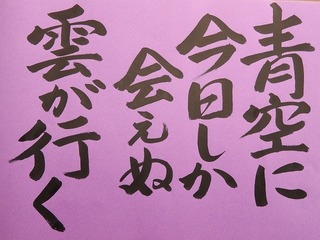 青空に
今日しか
会えぬ
雲が行く